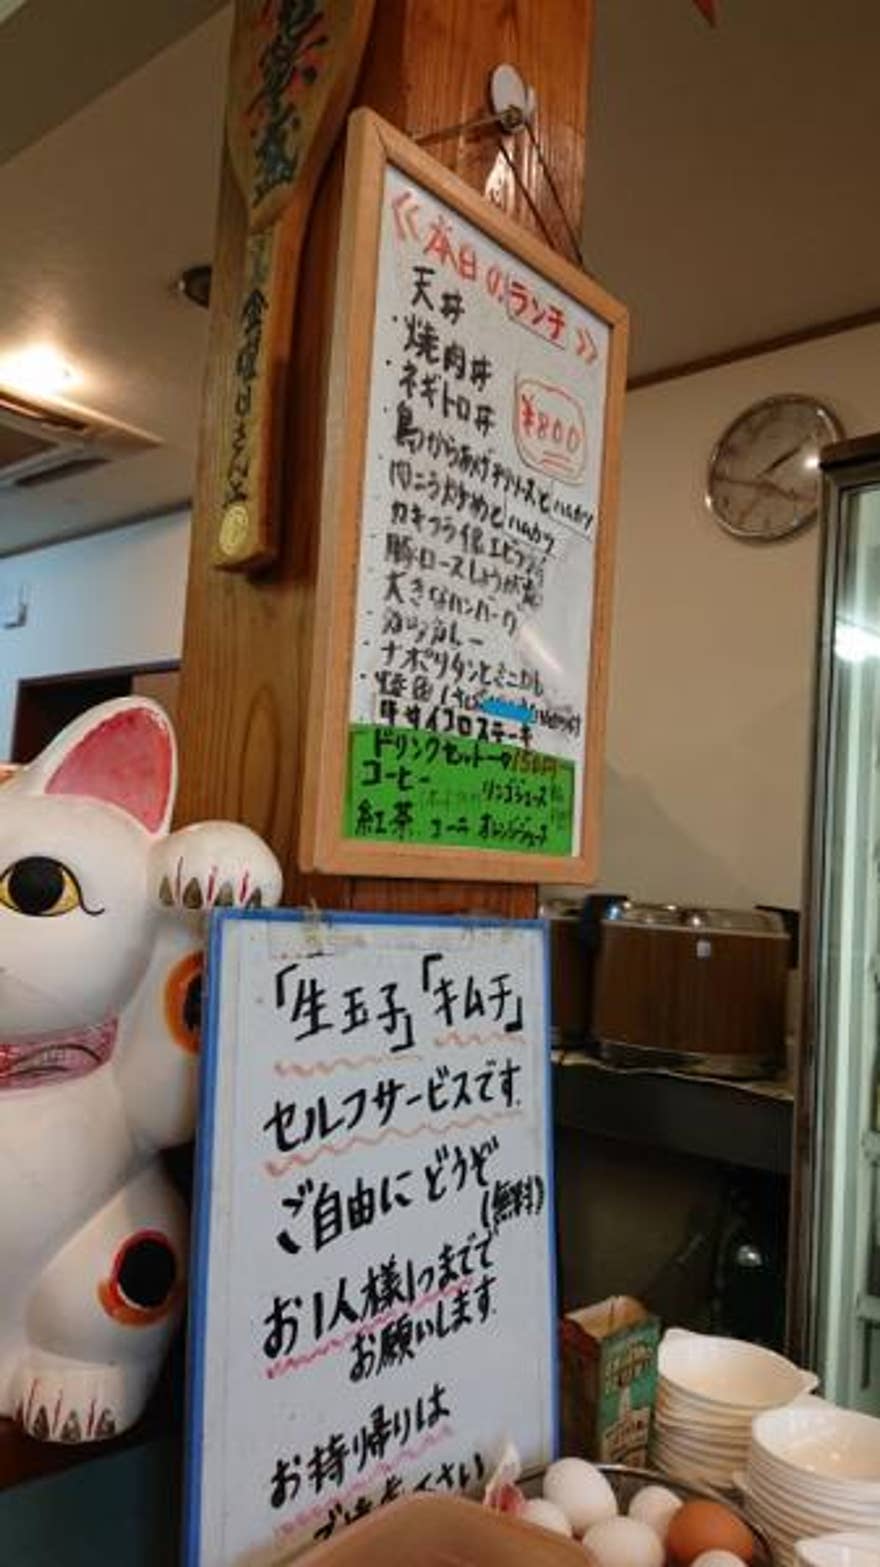 金曜日さんへ
≪本日のランチ≫
天丼
・焼肉丼
・ネギトロ丼
¥800
・鳥からあげチリソースとハムカツ
・肉ニラ炒めとハムカツ
・カキフライ
・豚ロースしょうが
・大きなハンバーグ
・カツカレー
・ナポリタンとミニ
・焼魚(さば
・牛サイコロステーキ
ドリンクセット 150円
コーヒー リンゴジュース
紅茶 コーラ オレンジジュース
「生玉子」「キムチ」
セルフサービスです.
ご自由にどうぞ
(無料)
お1人様1つまでで
お願いします.
お持り帰りは
ください